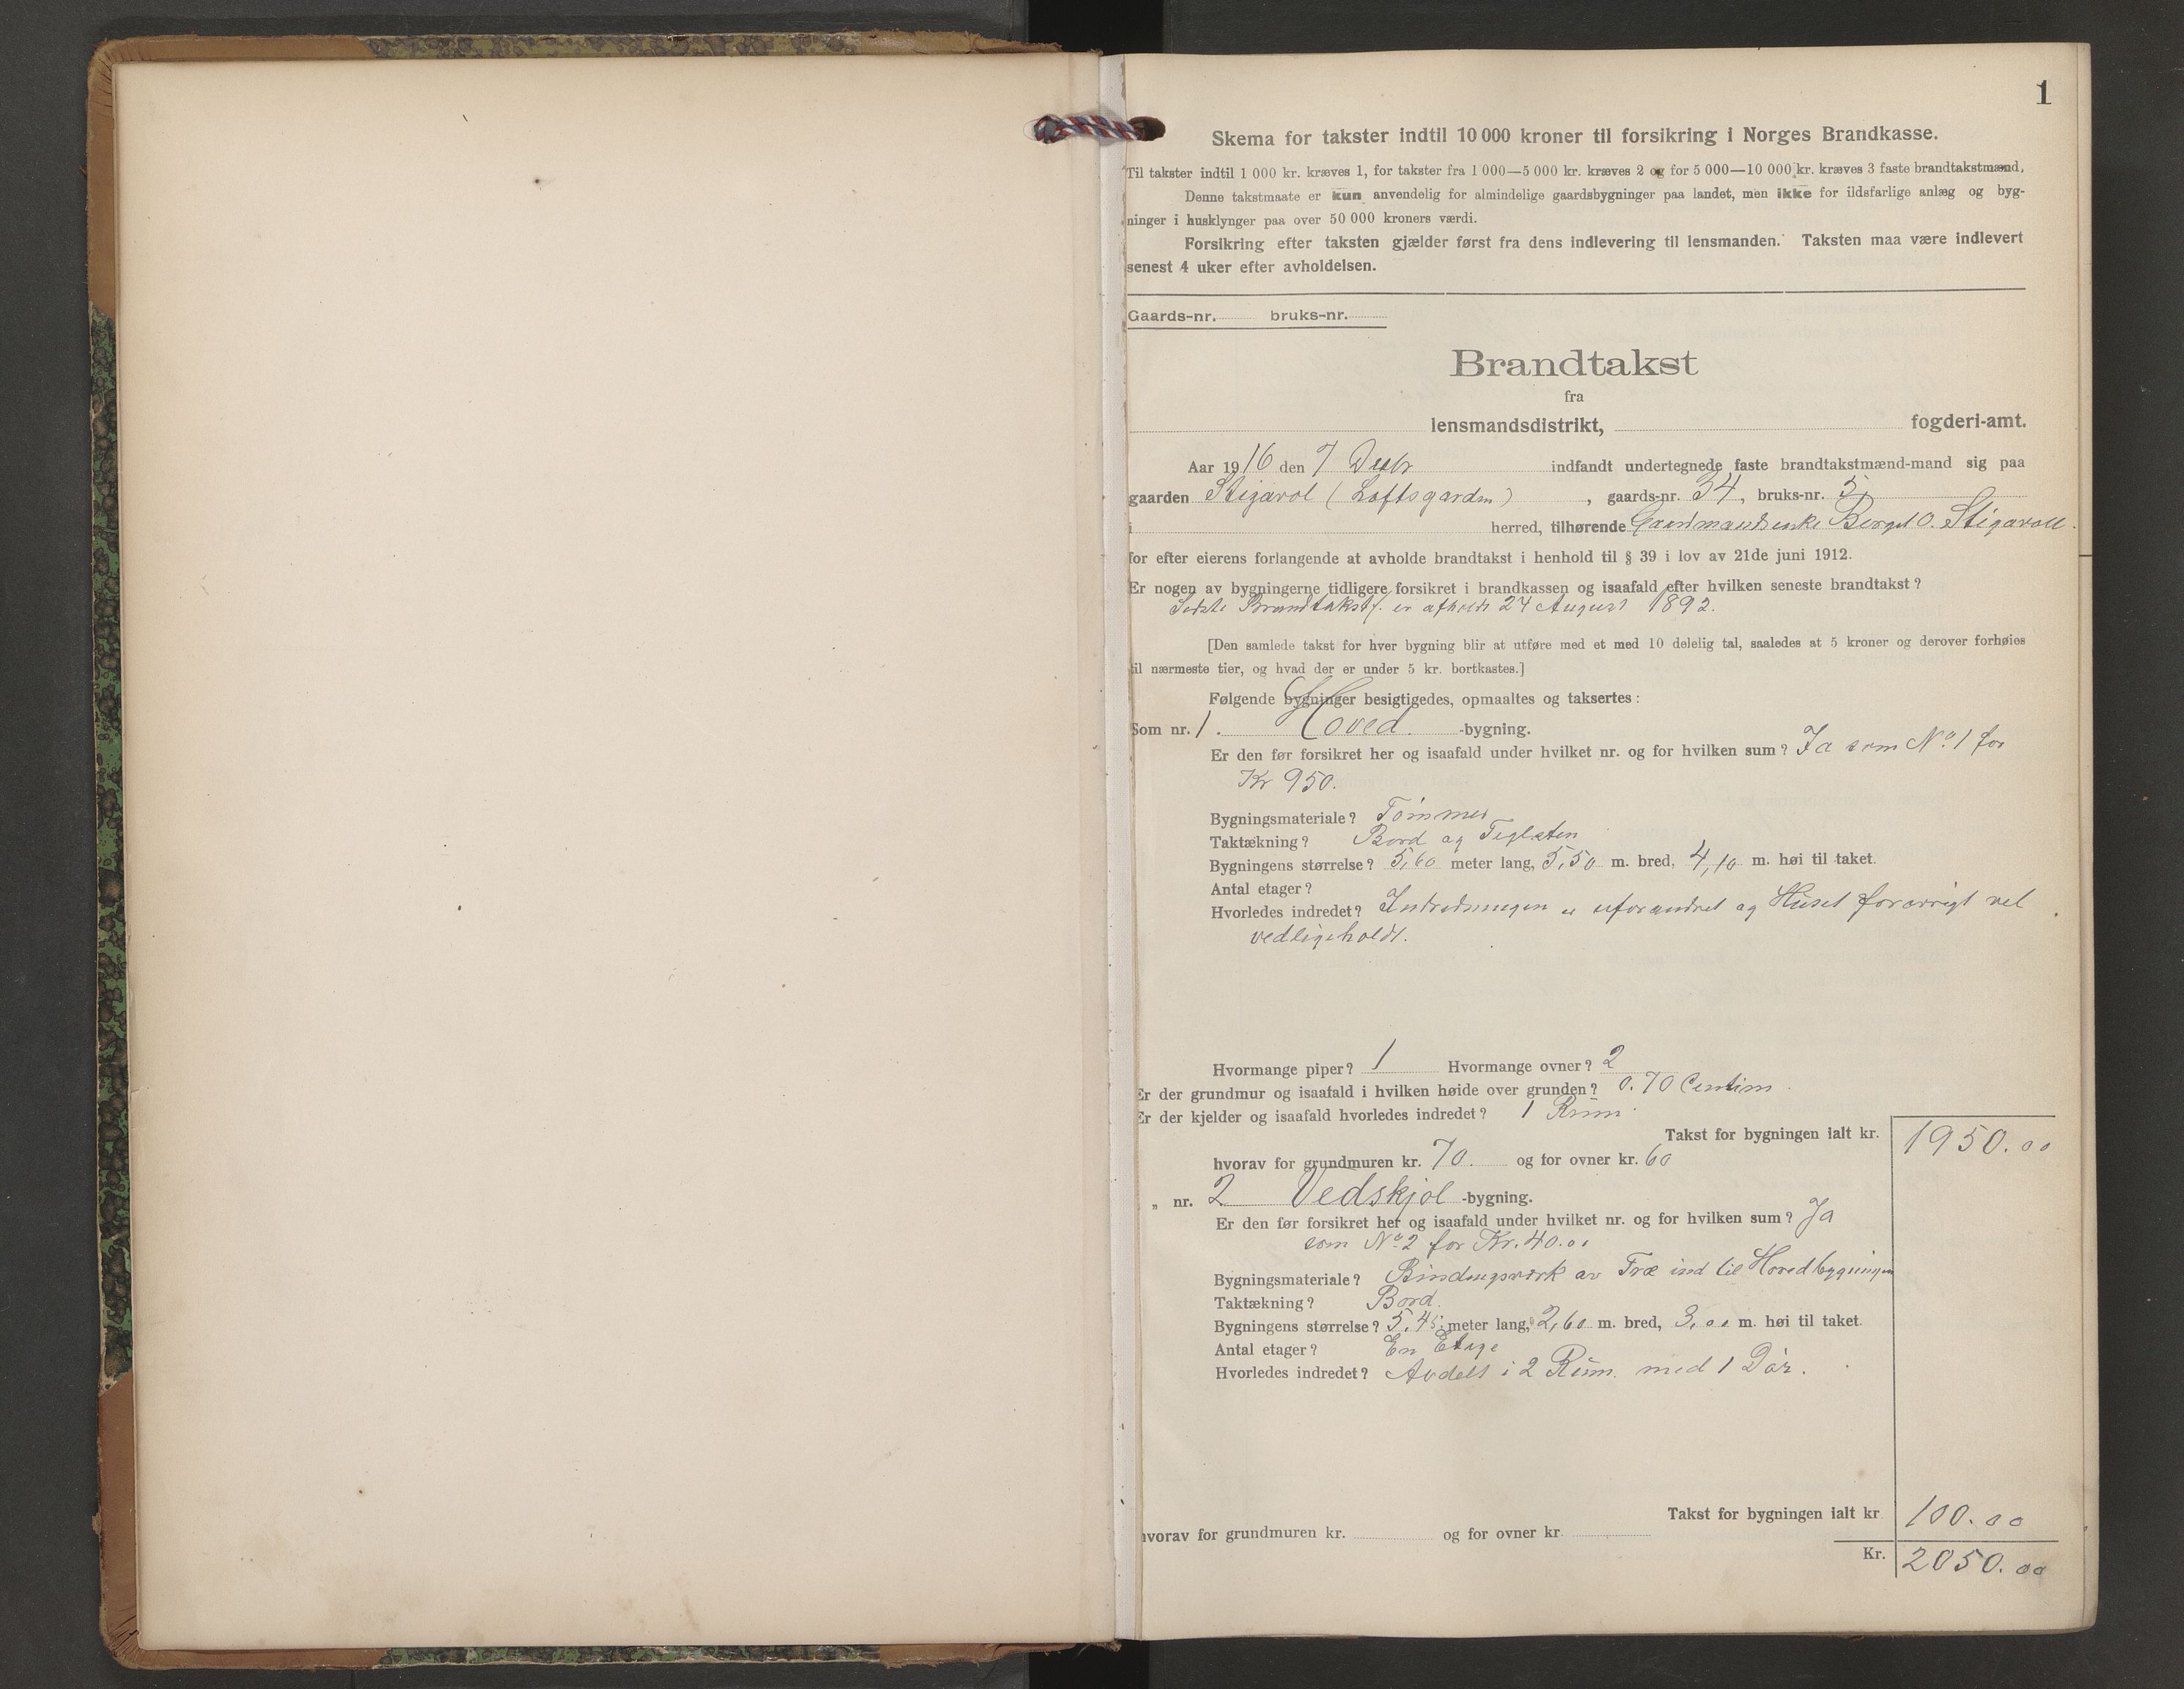 1
Skema for takster indtil 10 000 kroner til forsikring i Norges Brandkasse.
Til takster indtil 1 000 kr. kræves 1, for takster fra 1 000—5 000 kr. kræves 2 og for 5 000—10 000 kr. kræves 3 faste brandtakstmænd,
Denne takstmaate er kun anvendelig for almindelige gaardsbygninger paa landet, men ikke for ildsfarlige anlæg og byg-
ninger i husklynger paa over 50 000 kroners værdi.
Forsikring efter taksten gjælder først fra dens indlevering til lensmanden. Taksten maa være indlevert
senest 4 uker efter avholdelsen.
Gaards-nr. bruks-nr.
Brandtakst
fra
lensmandsdistrikt, fogderi-amt.
Aar 1916 den 7 Decbr indfandt undertegnede faste brandtakstmænd-mand sig paa
gaarden Stigavol (Loftsgarden), gaards-nr. 34, bruks-nr. 5
i herred, tilhørende Gaardmandsenke Berget O. Stigavoll.
for efter eierens forlangende at avholde brandtakst i henhold til § 39 i lov av 21de juni 1912.
Er nogen av bygningerne tidligere forsikret i brandkassen og isaafald efter hvilken seneste brandtakst?
Sidste Brandtakstf. er afholdt 24 August 1892.
[Den samlede takst for hver bygning blir at utføre med et med 10 delelig tal, saaledes at 5 kroner og derover forhøies
til nærmeste tier, og hvad der er under 5 kr. bortkastes.]
Følgende bygninger besigtigedes, opmaaltes og taksertes:
Som nr. 1. Hoved. -bygning.
Er den før forsikret her og isaafald under hvilket nr. og for hvilken sum? Ja som No. 1 for
Kr 950.
Bygningsmateriale? Tømmer
Taktækning? Bord og Teglsten
Bygningens størrelse? 5,60 meter lang, 5,50 m. bred, 4,10 m. høi til taket.
Antal etager?
Hvorledes indredet? Indredningen er uforandret og Huset forøvrigt vel
vedligeholdt.
Hvormange piper? 1 Hvormange ovner? 2
Er der grundmur og isaafald i hvilken høide over grunden? 0.70 Centim.
Er der kjelder og isaafald hvorledes indredet? 1 Rum.
Takst for bygningen ialt kr. 1950.00
hvorav for grundmuren kr. 70. og for ovner kr. 60
„ nr. 2 Vedskjol -bygning.
Er den før forsikret her og isaafald under hvilket nr. og for hvilken sum? Ja
som No. 2 for Kr. 40.00
Bygningsmateriale? Bindingsværk av Træ ind til Hovedbygningen
Taktækning? Bord.
Bygningens størrelse? 5.45 meter lang, 2,60 m. bred, 3,00 m. høi til taket.
Antal etager? En Etage
Hvorledes indredet? Avdelt i 2 Rum. med 1 Dør.
Takst for bygningen ialt kr 100.00
hvorav for grundmuren kr. og for ovner kr.
Kr. 2050.00